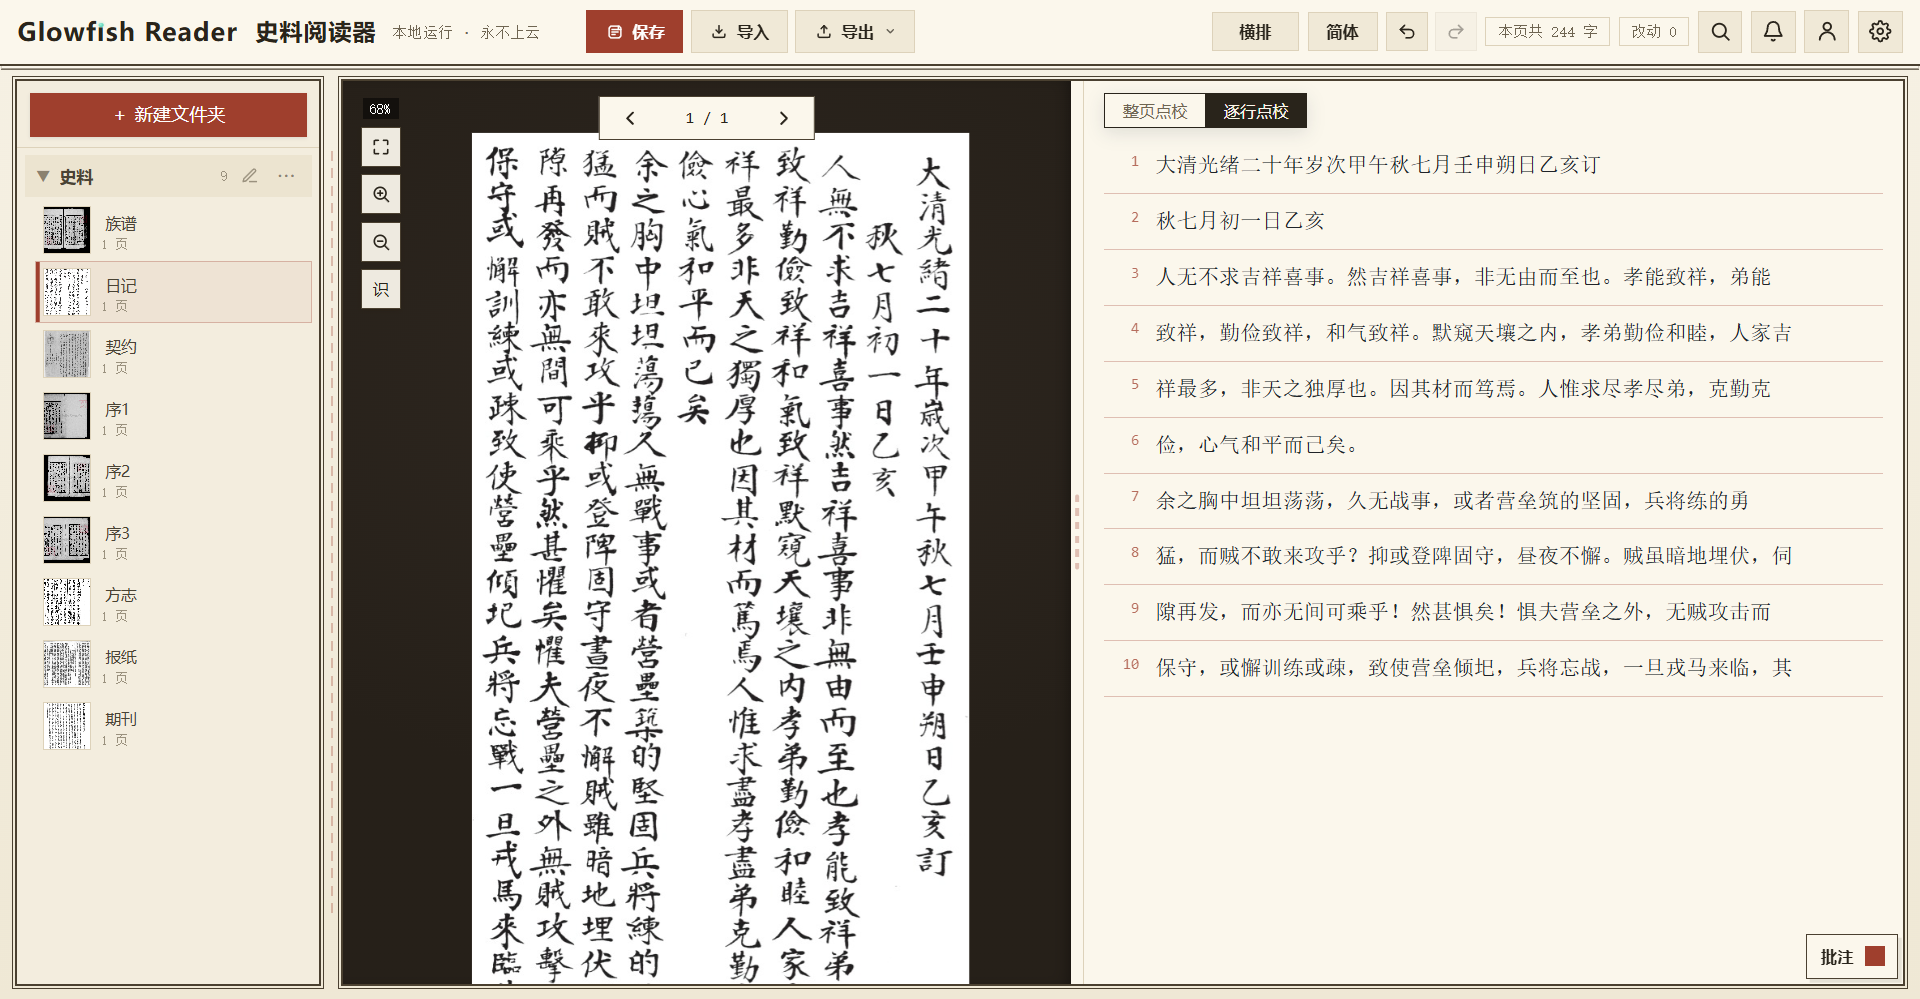 Glowfish Reader 史料阅读器 本地运行 · 永不上云 保存 导入 导出 横排 简体 本页共 244 字 改动 0
+ 新建文件夹
史料 9
族谱
1 页
日记
1 页
契约
1 页
序1
1 页
序2
1 页
序3
1 页
方志
1 页
报纸
1 页
期刊
1 页
68%
识
1 / 1
大清光緒二十年歲次甲午秋七月壬申朔日乙亥訂
秋七月初一日乙亥
人無不求吉祥喜事然吉祥喜事非無由而至也孝能致祥弟
致祥勤儉致祥和氣致祥默窺天壤之内孝弟勤儉和睦人家
祥最多非天之獨厚也因其材而篤焉人惟求盡孝盡弟克勤
儉心氣和平而已矣
余之胸中坦坦蕩蕩久無戰事或者營壘築的堅固兵將練的
猛而賊不敢來攻乎抑或登陴固守晝夜不懈賊雖暗地埋伏
隙再發而亦無間可乘乎然甚懼矣懼夫營壘之外無賊攻擊
保守或懈訓練或疎致使營壘傾圮兵將忘戰一旦戎馬來臨
整页点校 逐行点校
1 大清光绪二十年岁次甲午秋七月壬申朔日乙亥订
2 秋七月初一日乙亥
3 人无不求吉祥喜事。然吉祥喜事，非无由而至也。孝能致祥，弟能
4 致祥，勤俭致祥，和气致祥。默窥天壤之内，孝弟勤俭和睦，人家吉
5 祥最多，非天之独厚也。因其材而笃焉。人惟求尽孝尽弟，克勤克
6 俭，心气和平而己矣。
7 余之胸中坦坦荡荡，久无战事，或者营垒筑的坚固，兵将练的勇
8 猛，而贼不敢来攻乎？抑或登陴固守，昼夜不懈。贼虽暗地埋伏，伺
9 隙再发，而亦无间可乘乎！然甚惧矣！惧夫营垒之外，无贼攻击而
10 保守，或懈训练或疎，致使营垒倾圯，兵将忘战，一旦戎马来临，其
批注